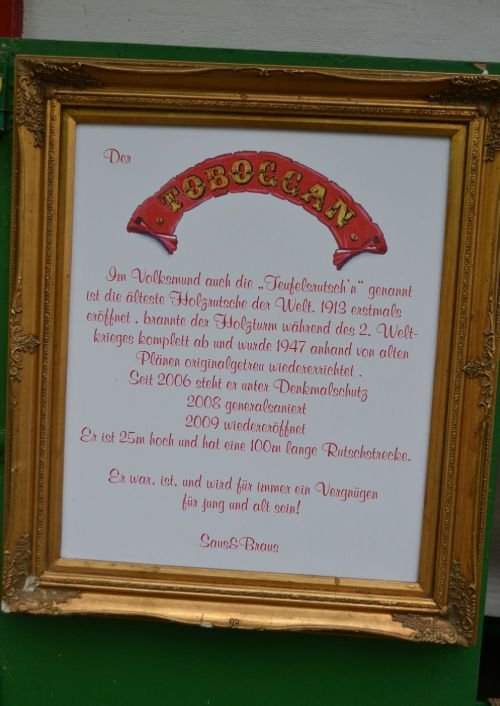 Der
TOBOGGAN
Im Volksmund auch die „Teufelsrutsch'n“ genannt
ist die älteste Holzrutsche der Welt. 1913 erstmals
eröffnet . brannte der Holzturm während des 2. Welt-
krieges komplett ab und wurde 1947 anhand von alten
Plänen originalgetreu wiedererrichtet .
Seit 2006 steht er unter Denkmalschutz
2008 generalsaniert
2009 wiedereröffnet
Er ist 25m hoch und hat eine 100m lange Rutschstrecke.
Er war, ist, und wird für immer ein Vergnügen
für jung und alt sein!
Saus&Braus